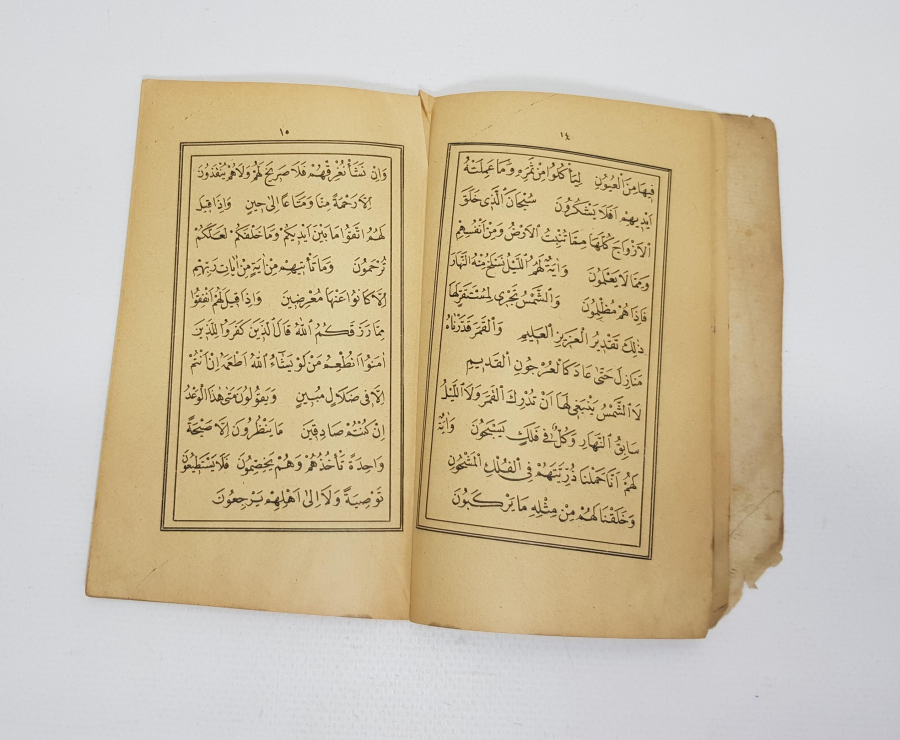 ١٤
فِيهَا مِنَ الْعُيُونِ لِيَأْكُلُوا مِنْ ثَمَرِهِ وَمَا عَمِلَتْهُ
اَيْدِيهِمْ اَفَلَا يَشْكُرُونَ سُبْحَانَ الَّذِى خَلَقَ
الْاَزْوَاجَ كُلَّهَا مِمَّا تُنْبِتُ الْاَرْضُ وَمِنْ اَنْفُسِهِمْ
وَمِمَّا لَا يَعْلَمُونَ وَاٰيَةٌ لَهُمُ الَّيْلُ نَسْلَخُ مِنْهُ النَّهَارَ
فَاِذَا هُمْ مُظْلِمُونَ وَالشَّمْسُ تَجْرِى لِمُسْتَقَرٍّ لَهَا
ذٰلِكَ تَقْدِيرُ الْعَزِيزِ الْعَلِيمِ وَالْقَمَرَ قَدَّرْنَاهُ
مَنَازِلَ حَتّٰى عَادَ كَالْعُرْجُونِ الْقَدِيمِ
لَا الشَّمْسُ يَنْبَغِى لَهَا اَنْ تُدْرِكَ الْقَمَرَ وَلَا الَّيْلُ
سَابِقُ النَّهَارِ وَكُلٌّ فِى فَلَكٍ يَسْبَحُونَ وَاٰيَةٌ
لَهُمْ اَنَّا حَمَلْنَا ذُرِّيَّتَهُمْ فِى الْفُلْكِ الْمَشْحُونِ
وَخَلَقْنَا لَهُمْ مِنْ مِثْلِهِ مَا يَرْكَبُونَ
١٥
وَاِنْ نَشَأْ نُغْرِقْهُمْ فَلَا صَرِيخَ لَهُمْ وَلَا هُمْ يُنْقَذُونَ
اِلَّا رَحْمَةً مِنَّا وَمَتَاعًا اِلٰى حِينٍ وَاِذَا قِيلَ
لَهُمُ اتَّقُوا مَا بَيْنَ اَيْدِيكُمْ وَمَا خَلْفَكُمْ لَعَلَّكُمْ
تُرْحَمُونَ وَمَا تَأْتِيهِمْ مِنْ اٰيَةٍ مِنْ اٰيَاتِ رَبِّهِمْ
اِلَّا كَانُوا عَنْهَا مُعْرِضِينَ وَاِذَا قِيلَ لَهُمْ اَنْفِقُوا
مِمَّا رَزَقَكُمُ اللّٰهُ قَالَ الَّذِينَ كَفَرُوا لِلَّذِينَ
اٰمَنُوا اَنُطْعِمُ مَنْ لَوْ يَشَاءُ اللّٰهُ اَطْعَمَهُ اِنْ اَنْتُمْ
اِلَّا فِى ضَلَالٍ مُبِينٍ وَيَقُولُونَ مَتٰى هٰذَا الْوَعْدُ
اِنْ كُنْتُمْ صَادِقِينَ مَا يَنْظُرُونَ اِلَّا صَيْحَةً
وَاحِدَةً تَأْخُذُهُمْ وَهُمْ يَخِصِّمُونَ فَلَا يَسْتَطِيعُونَ
تَوْصِيَةً وَلَا اِلٰى اَهْلِهِمْ يَرْجِعُونَ